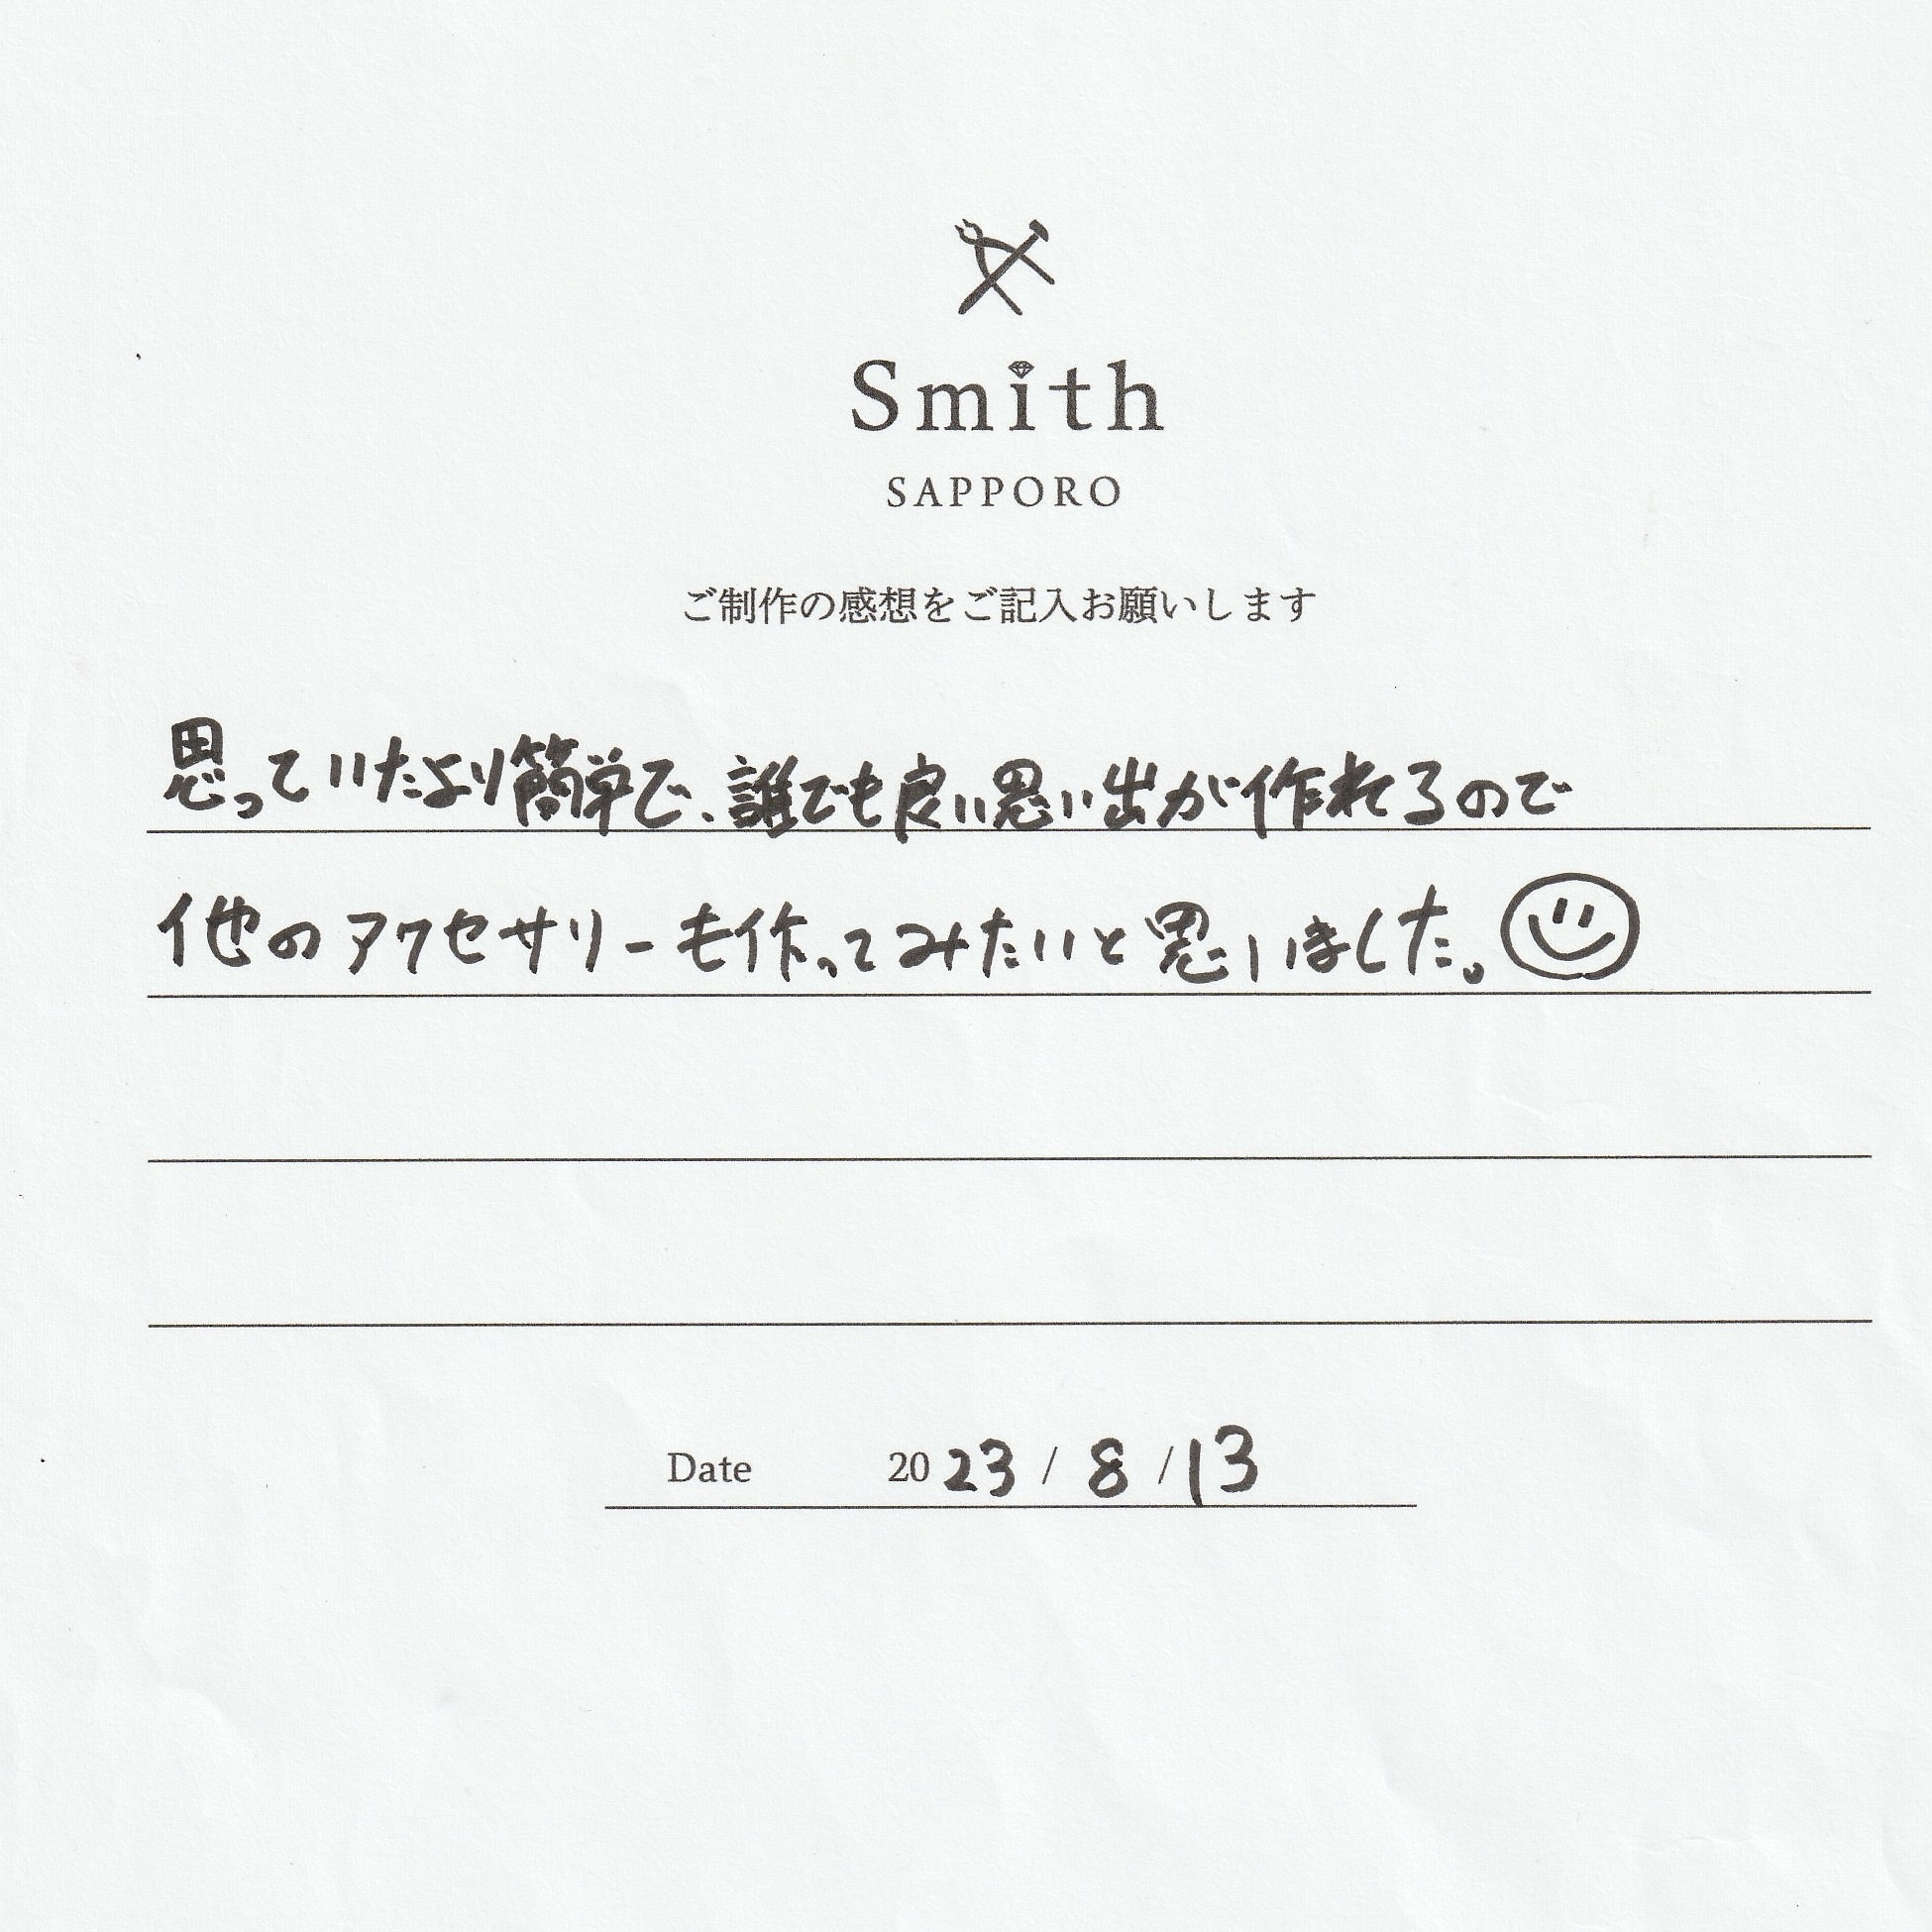 Smith
SAPPORO
ご制作の感想をご記入お願いします
思っていたより簡単で、誰でも良い思い出が作れるので
他のアクセサリーも作ってみたいと思いました。
Date 2023 / 8 / 13